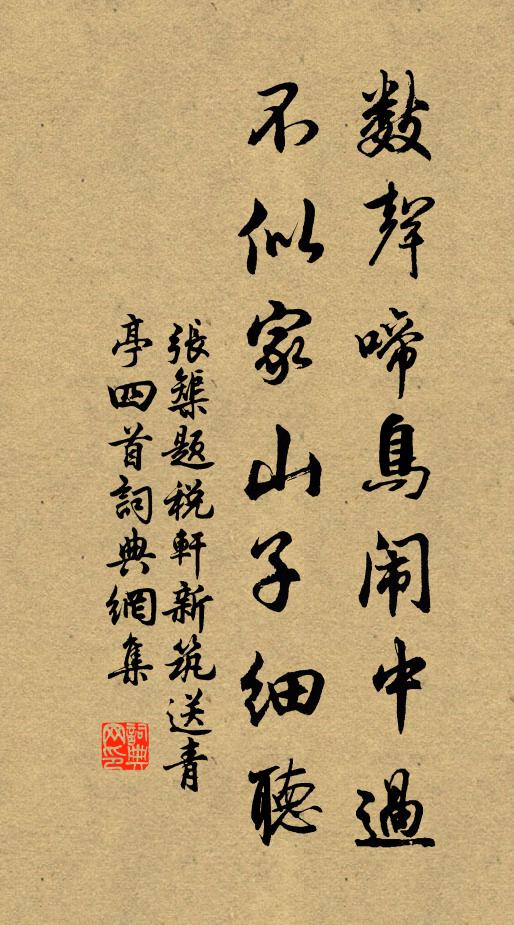 數聲啼鳥闹中過
不似家山子細聽
張榘題税軒新筑送青
亭四首詞典網集
詞典
网印